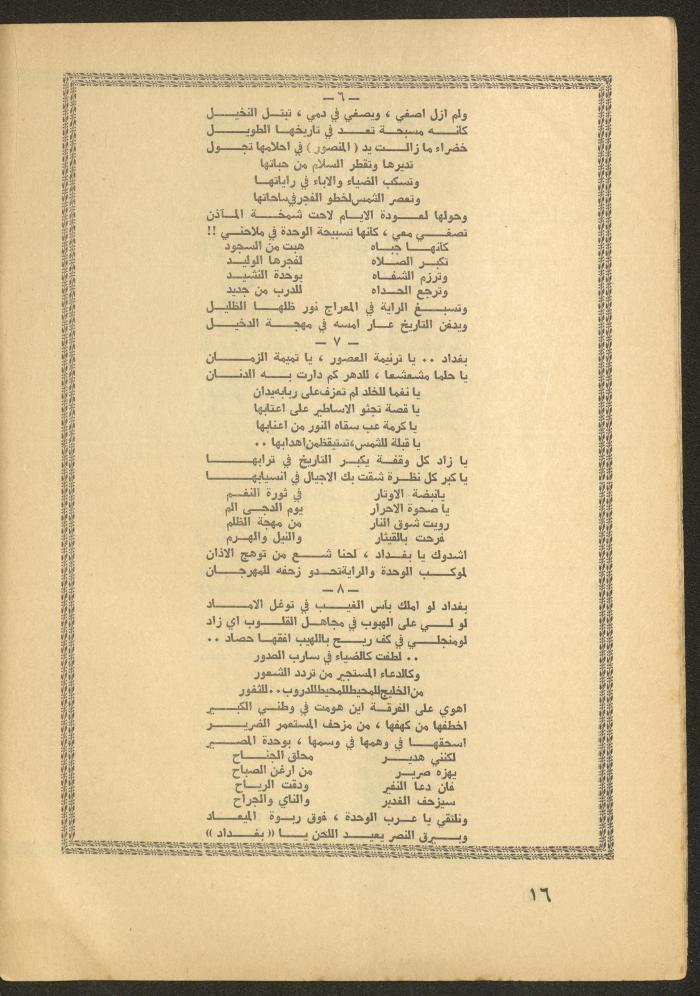 — ٦ —
ولم ازل اصغي ، ويصغي في دمي ، تبتل النخيـل
كأنـــه مسبحة تعــد في تاريخهــا الطويـــل
خضراء ما زالــت يد ( المنصور ) في احلامها تجـول
تديرها وتقطر السلام من حباتها
وتسكب الضياء والاباء في راياتهـا
وتعصر الشمس لخطو الفجر في ساحاتها
وحولها لعــودة الايــام لاحت شمخــة المــآذن
تصغــي معي ، كأنها تسبيحة الوحدة في ملاحنــي !!
كأنهـــا جبــاه هبت من السجود
تكبر الصــلاه لفجرها الوليـد
وترزم الشفــاه بوحدة النشيـد
وترجع الحـداه للدرب من جديد
وتسبــغ الراية في المعراج نور ظلهــا الظليـل
ويدفن التاريخ عــار امسه في مهجــة الدخيـل
— ٧ —
بغداد .. يا ترنيمة العصور ، يا تميمة الزمــان
يا حلما مشعشعا ، للدهر كم دارت بــه الدنــان
يا نغما للخلد لم تعزف على ربابه يدان
يا قصة تجثو الاساطير على اعتابها
يا كرمة عب سقاه النور من اعنابها
يا قبلة للشمس، تستيقظ من اهدابها ..
يا زاد كل وقفــة يكبــر التاريخ في ترابهــا
يا كبر كل نظـرة شقت بك الاجيال في انسيابهــا
يا نبضة الاوتار في ثورة النغـم
يا صحوة الاحرار يوم الدجـى الم
رويت شوق النار من مهجة الظلم
فرحت بالقيثار والنيل والهـرم
اشدوك يا بغــداد ، لحنا شــع من توهج الاذان
لموكــب الوحدة والراية تحـدو زحفه للمهرجــان
— ٨ —
بغداد لو املك بأس الغيــب في توغل الامــاد
لو لــي على الهبوب في مجاهـل القلــوب اي زاد
لو منجلــي في كف ريــح باللهيب افقها حصاد ..
.. لطفت كالضياء في سارب الصدور
وكالدعاء المستجير من تردد الشعور
من الخليج للمحيط للمحيط للدروب .. للثغور
اهوي على الفرقـة اين هومت في وطنــي الكبــير
اخطفها من كهفها ، من مزحف المستعمر الضريــر
اسحقهــا في وهمها في وسمها ، بوحدة المصــير
لكنني هديــر محلق الجنــاح
يهزه صريــر من ارغن الصباح
فان دعا النفير ودقت الريــاح
سيزحف الغدير والناي والجراح
ونلتقي يا عــرب الوحدة ، فوق ربــوة الميعــاد
ويبــرق النصر يعيــد اللحن يــا (( بغــداد ))
١٦